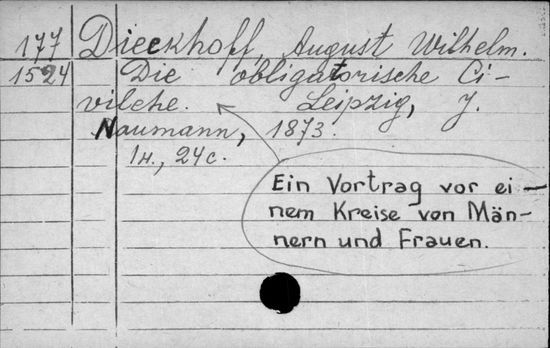 177 Dieckhoff, August Wilhelm.
1524 Die obligatorische Ci-
vilehe. Leipzig, J.
Naumann, 1873.
1н., 24с.
Ein Vortrag vor ei-
nem Kreise von Män-
nern und Frauen.